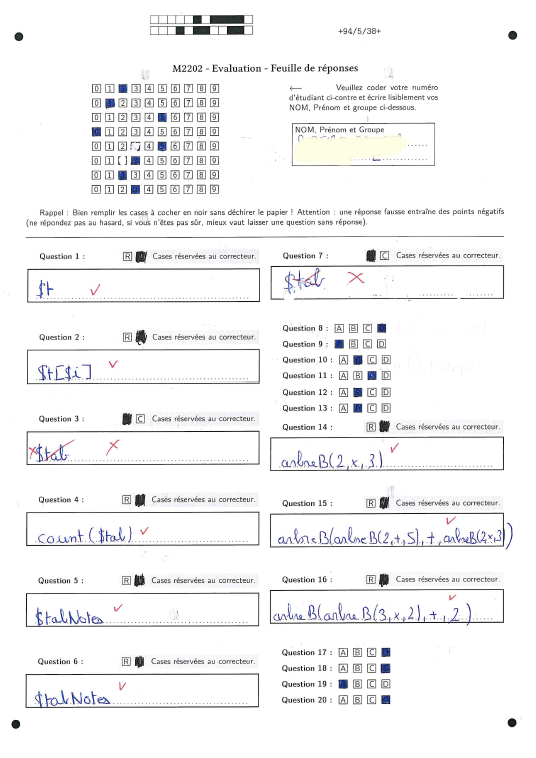 +94/5/38+
M2202 - Evaluation - Feuille de réponses
0 1 3 4 5 6 7 8 9
0 2 3 4 5 6 7 8 9
0 1 2 3 4 6 7 8 9
1 2 3 4 5 6 7 8 9
0 1 2 4 6 7 8 9
0 1 2 4 5 6 7 8 9
0 1 3 4 5 6 7 8 9
0 1 2 4 5 6 7 8 9
⟵ Veuillez coder votre numéro
d'étudiant ci-contre et écrire lisiblement vos
NOM, Prénom et groupe ci-dessous.
NOM, Prénom et Groupe
Rappel : Bien remplir les cases à cocher en noir sans déchirer le papier ! Attention : une réponse fausse entraîne des points négatifs
(ne répondez pas au hasard, si vous n'êtes pas sûr, mieux vaut laisser une question sans réponse).
Question 1 : R Cases réservées au correcteur.
$t
Question 2 : R Cases réservées au correcteur.
$t[$i]
Question 3 : C Cases réservées au correcteur.
$tab
Question 4 : R Cases réservées au correcteur.
count($tal)
Question 5 : R Cases réservées au correcteur.
$talNotes
Question 6 : R Cases réservées au correcteur.
$talNotes
Question 7 : C Cases réservées au correcteur.
$tal
Question 8 : A B C
Question 9 : B C D
Question 10 : A C D
Question 11 : A B D
Question 12 : A C D
Question 13 : A C D
Question 14 : R Cases réservées au correcteur.
arbreB(2,x,3)
Question 15 : R Cases réservées au correcteur.
arbreB(arbreB(2,+,5),+,arbreB(2,x,3))
Question 16 : R Cases réservées au correcteur.
arbreB(arbreB(3,x,2),+,2)
Question 17 : A B C
Question 18 : A B C
Question 19 : B C D
Question 20 : A B C